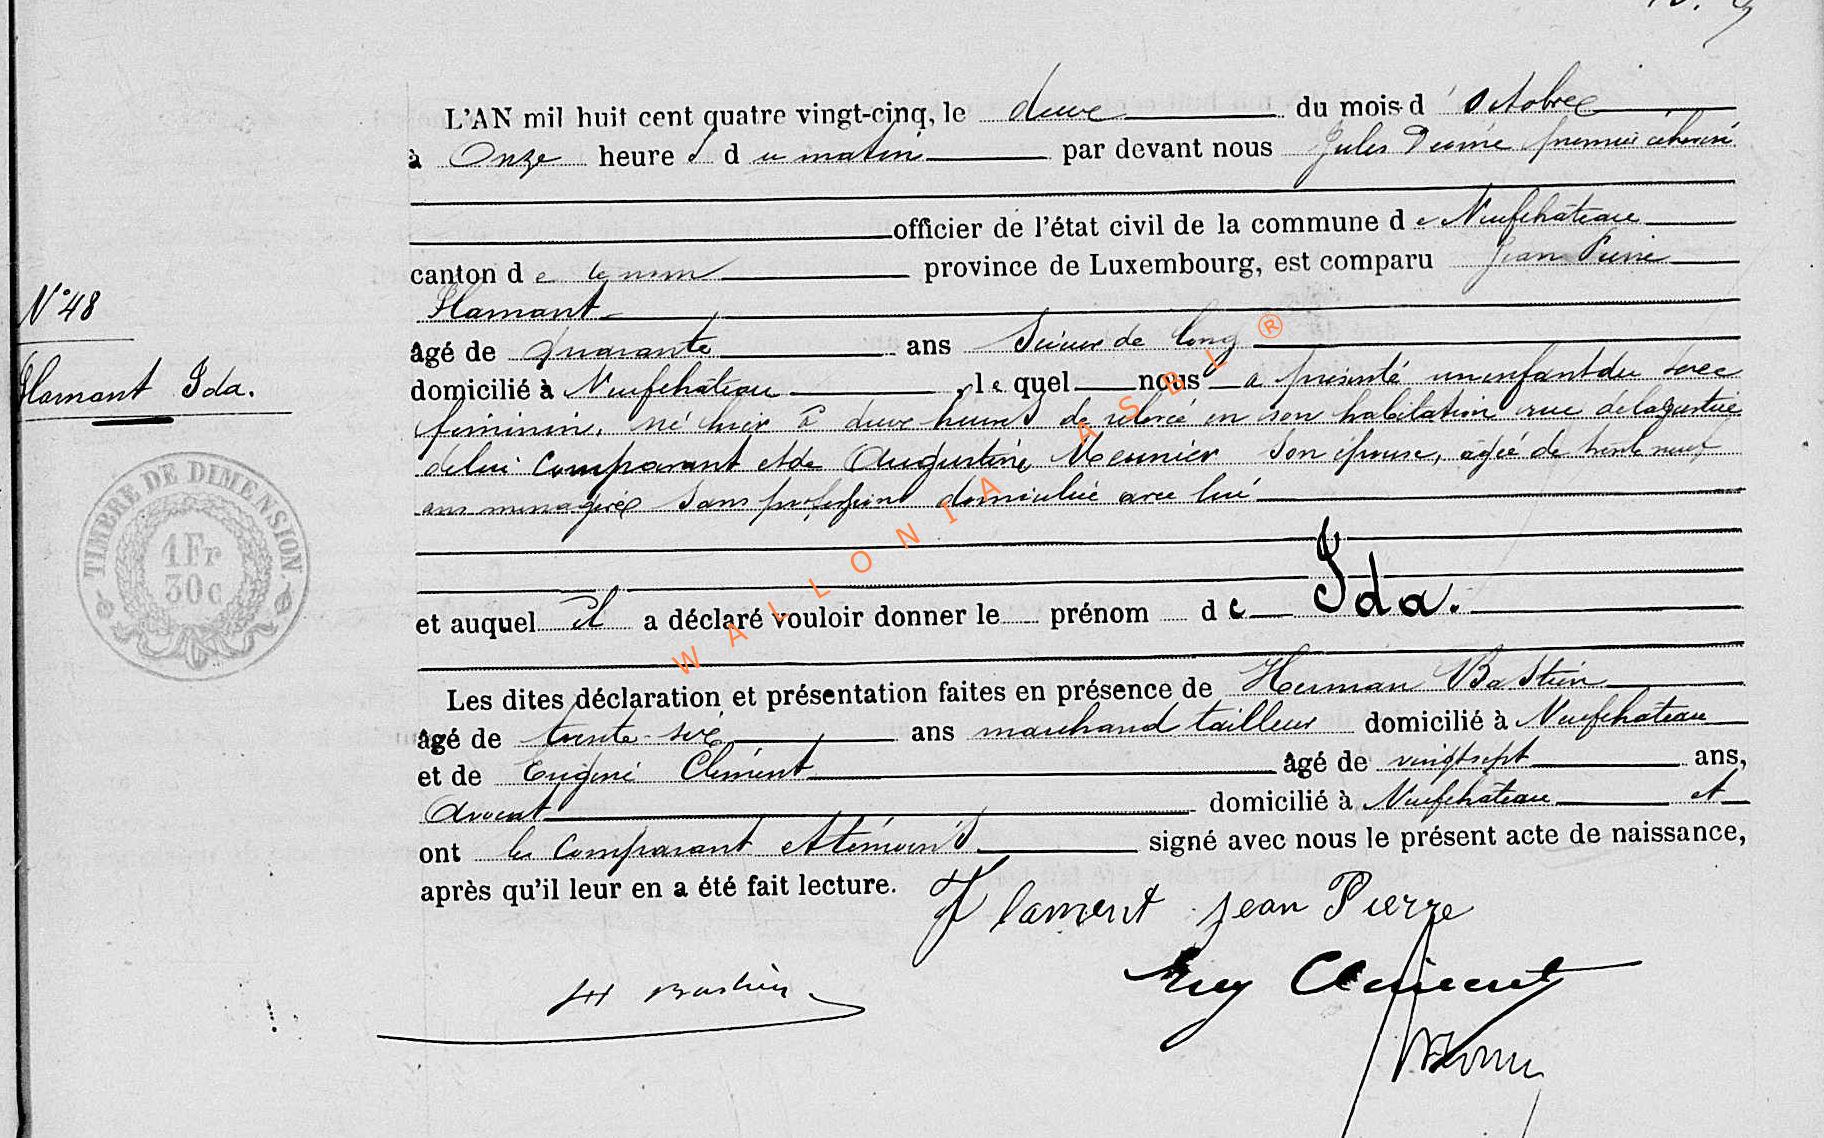 L'AN mil huit cent quatre vingt-cinq, le deux du mois d'Octobre
à Onze heures du matin par devant nous Jules premier échevin
officier de l'état civil de la commune de Neufchâteau
canton de ce nom province de Luxembourg, est comparu Jean Pierre
N° 48
Flamant
âgé de quarante ans Scieur de long
Flamant Ida.
domicilié à Neufchâteau, lequel nous a présenté un enfant du sexe
féminin, né hier à deux heures de relevée en son habitation rue de la Justice
de lui comparant et de Augustine Meunier son épouse, agée de trente neuf
ans ménagère sans profession domiciliée avec lui
TIMBRE DE DIMENSION
1Fr
30c
et auquel il a déclaré vouloir donner le prénom de Ida.
Les dites déclaration et présentation faites en présence de Herman Bastien
âgé de trente-six ans marchand tailleur domicilié à Neufchâteau
et de Eugène Clément âgé de vingt sept ans,
Avocat domicilié à Neufchâteau et
ont les comparant et témoins signé avec nous le présent acte de naissance,
après qu'il leur en a été fait lecture.
Flament Jean Pierre
H Bastien
Eug Clément
WALLONIA ASBL ®